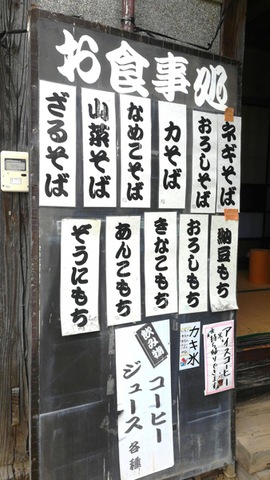 お食事処
ネギそば
おろしそば
力そば
なめこそば
山菜そば
ざるそば
納豆もち
おろしもち
きなこもち
あんこもち
ぞうにもち
アイスコーヒー
カキ氷
飲み物
コーヒー
ジュース各種